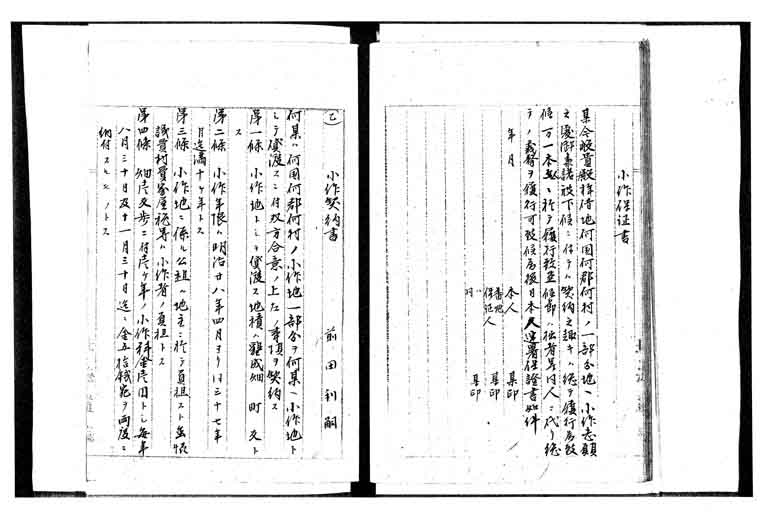 小作保証書
某今般貴殿拝借地何国何郡何村ノ一部分地ヘ小作志願
之処御承諾被下候ニ付テハ契約之趣キハ総テ履行為致
候万一本人ニ於テ履行致
テノ義務ヲ履行可致候為後日本人連署保證書如件
年 月
本人 某印
番地
保証人 某印
同 某印
乙 小作契約書 前田利嗣
何某ハ何国何郡何村ノ小作地一部分ヲ何某ヘ小作地ト
シテ貸渡スニ付双方合意ノ上左ノ事項ヲ契約ス
第一條 小作地トシテ貸渡ス地積ハ墾成畑 町 反ト
ス
第二條 小作年限ハ明治廿八年四月ヨリ同三十七年
月迄満十ケ年トス
第三條 小作地ニ係ル公租ハ地主ニ於テ負担スト雖
議費村費家屋税等ハ小作者ノ負担トス
第四條 畑壱反歩ニ付壱ケ年ノ小作料金壱円トシ毎年
八月三十日及十一月三十日迄ニ金五拾銭宛ヲ両度ニ
納付スルモノトス